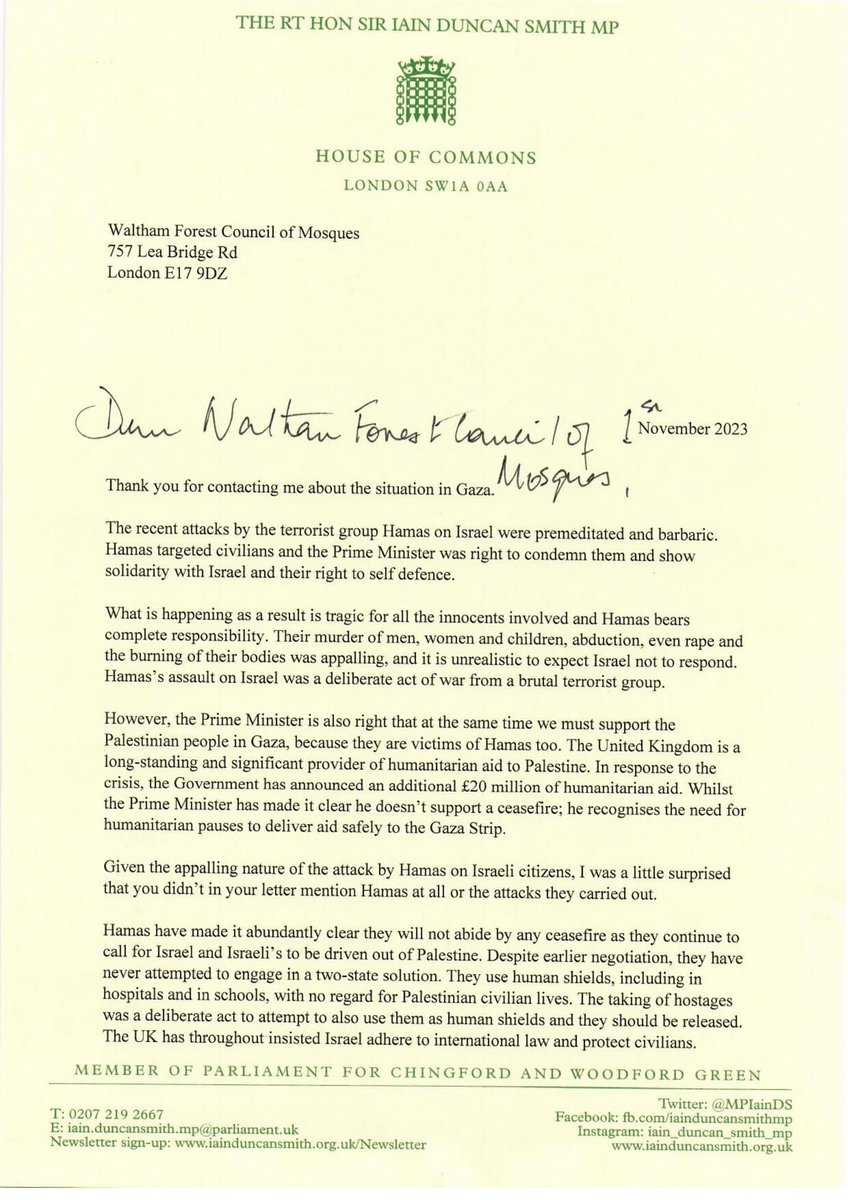 THE RT HON SIR IAIN DUNCAN SMITH MP
HOUSE OF COMMONS
LONDON SW1A 0AA
Waltham Forest Council of Mosques
757 Lea Bridge Rd
London E17 9DZ
Dear Waltham Forest Council of
Mosques,
1st November 2023
Thank you for contacting me about the situation in Gaza.
The recent attacks by the terrorist group Hamas on Israel were premeditated and barbaric.
Hamas targeted civilians and the Prime Minister was right to condemn them and show
solidarity with Israel and their right to self defence.
What is happening as a result is tragic for all the innocents involved and Hamas bears
complete responsibility. Their murder of men, women and children, abduction, even rape and
the burning of their bodies was appalling, and it is unrealistic to expect Israel not to respond.
Hamas's assault on Israel was a deliberate act of war from a brutal terrorist group.
However, the Prime Minister is also right that at the same time we must support the
Palestinian people in Gaza, because they are victims of Hamas too. The United Kingdom is a
long-standing and significant provider of humanitarian aid to Palestine. In response to the
crisis, the Government has announced an additional £20 million of humanitarian aid. Whilst
the Prime Minister has made it clear he doesn't support a ceasefire; he recognises the need for
humanitarian pauses to deliver aid safely to the Gaza Strip.
Given the appalling nature of the attack by Hamas on Israeli citizens, I was a little surprised
that you didn't in your letter mention Hamas at all or the attacks they carried out.
Hamas have made it abundantly clear they will not abide by any ceasefire as they continue to
call for Israel and Israeli's to be driven out of Palestine. Despite earlier negotiation, they have
never attempted to engage in a two-state solution. They use human shields, including in
hospitals and in schools, with no regard for Palestinian civilian lives. The taking of hostages
was a deliberate act to attempt to also use them as human shields and they should be released.
The UK has throughout insisted Israel adhere to international law and protect civilians.
MEMBER OF PARLIAMENT FOR CHINGFORD AND WOODFORD GREEN
T: 0207 219 2667
E: iain.duncansmith.mp@parliament.uk
Newsletter sign-up: www.iainduncansmith.org.uk/Newsletter
Twitter: @MPIainDS
Facebook: fb.com/iainduncansmithmp
Instagram: iain_duncan_smith_mp
www.iainduncansmith.org.uk